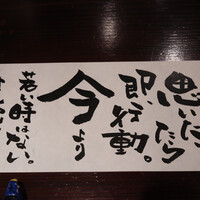 思いたったら
即、行動。
今より
若い時はない。